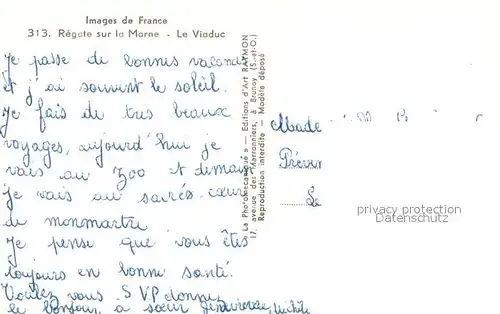 Images de France
313. Régate sur la Marne - Le Viaduc
Je passe de bonnes vacances
et j'ai souvent le soleil.
Je fais de tres beaux
voyages, aujourd'hui je
vais au zoo et demain
je vais au sacrés-coeur
de monmartre
Je pense que vous êtes
toujours en bonne santé.
Voulez vous S V P donner
le bonjour à sœur
« La Photomécanique » — Editions d'Art RAYMON
17, avenue des Marronniers, à Brunoy (S.-et-O.)
Reproduction interdite — Modèle déposé
Made
Le
privacy protection
Datenschutz